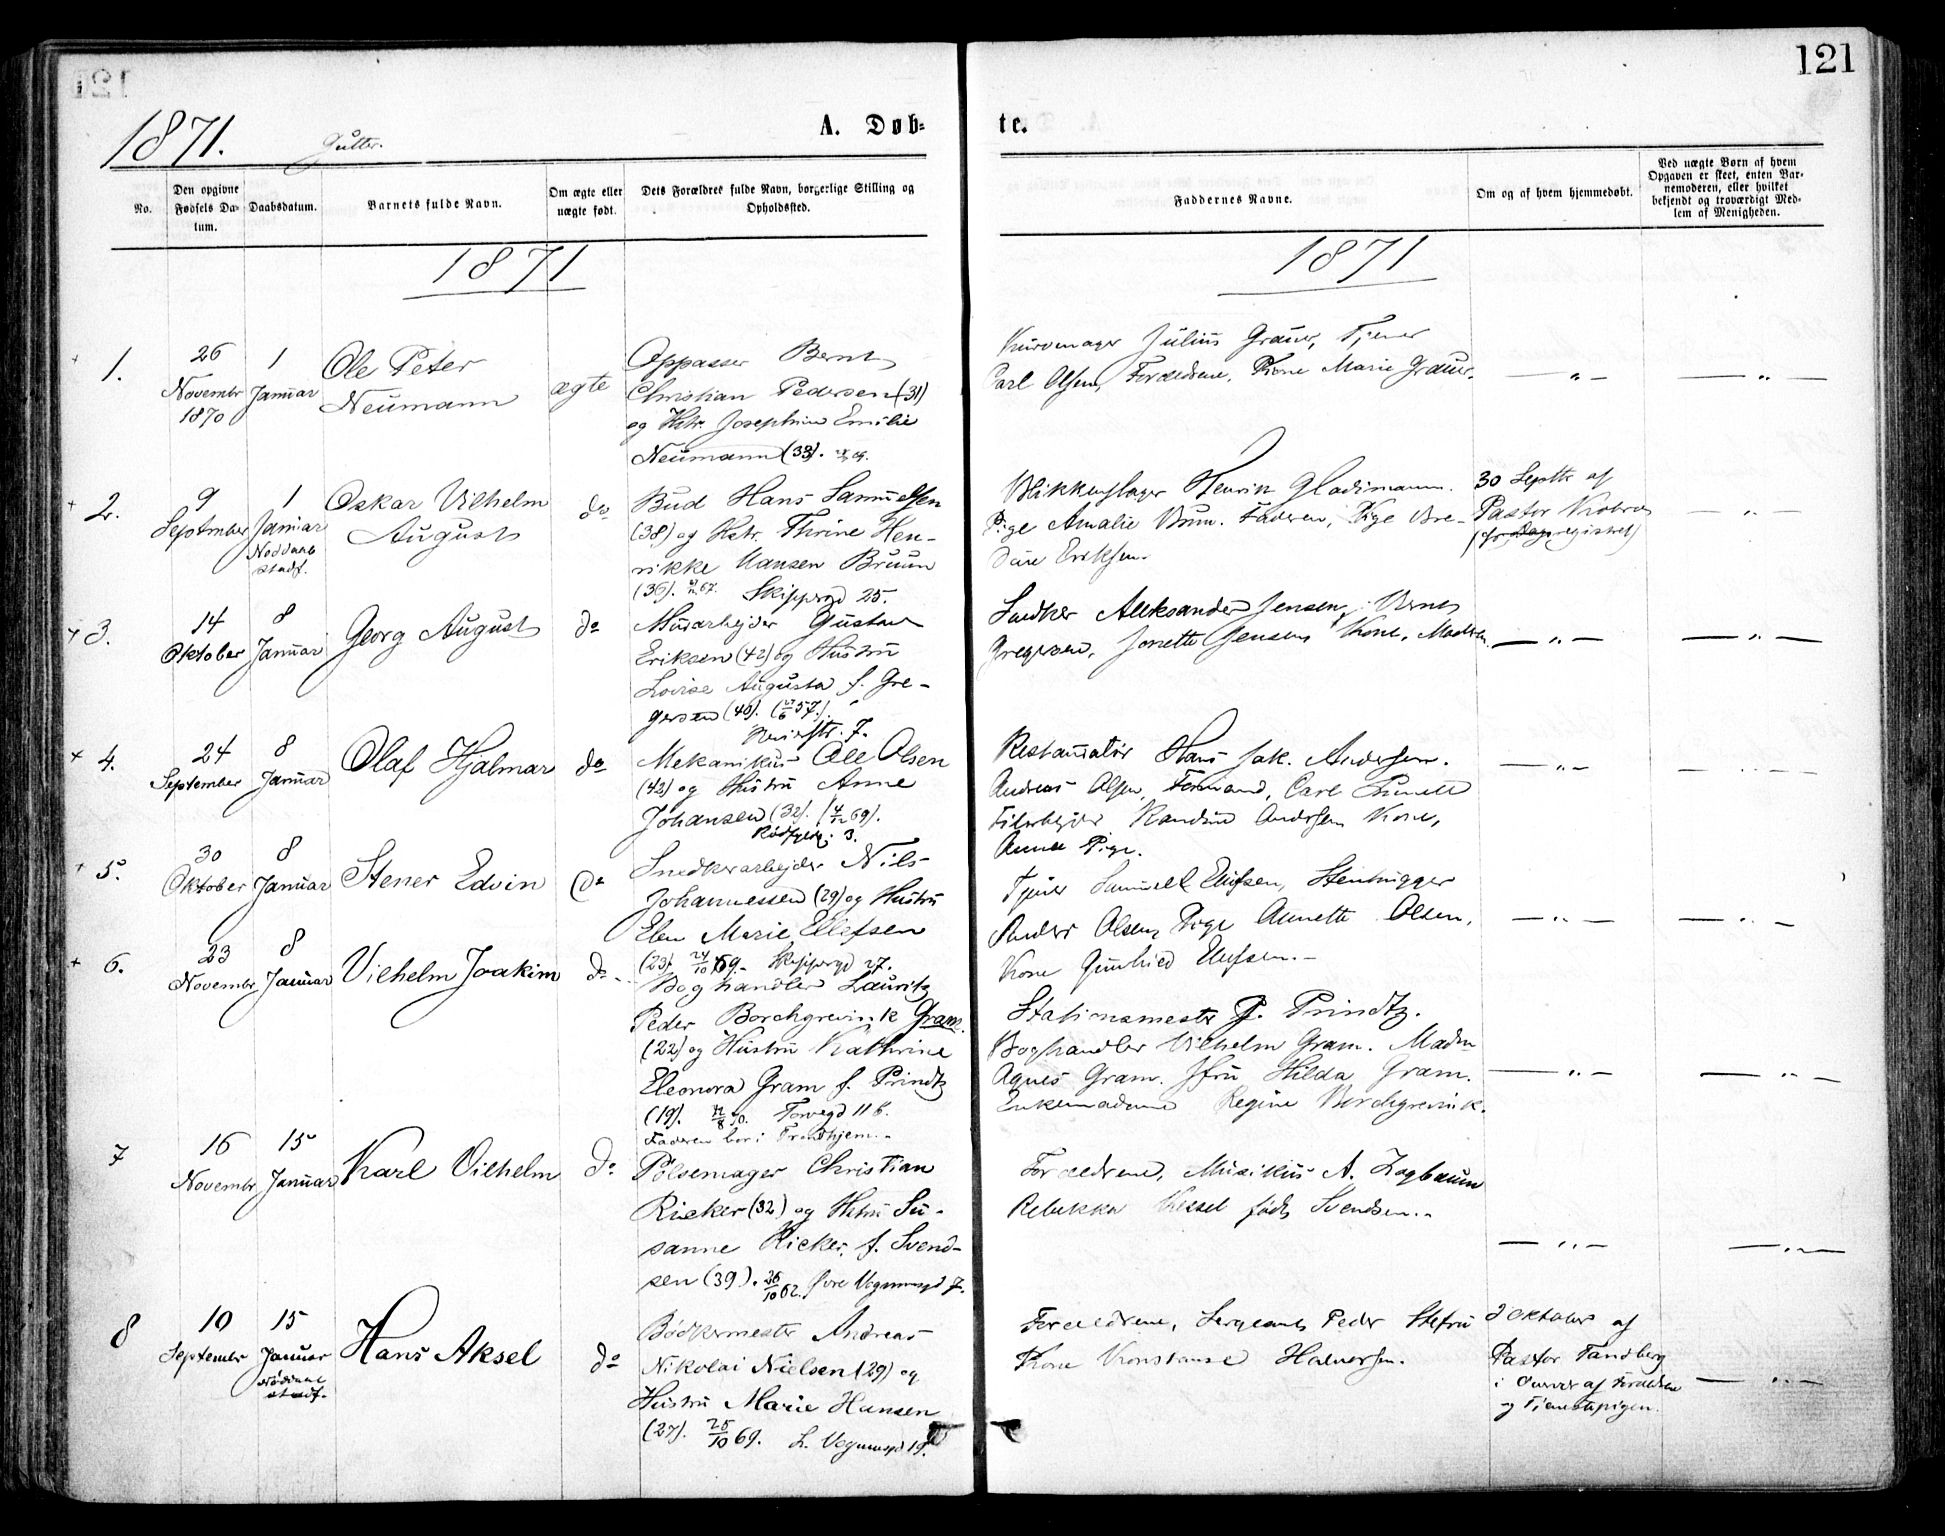 121
1871.
Gutter.
A. Døb-
te.
No.
Den opgivne Fødsels Datum.
Daabsdatum.
Barnets fulde Navn.
Om ægte eller uægte født.
Dets Forældres fulde Navn, borgerlige Stilling og Opholdssted.
Faddernes Navne.
Om og af hvem hjemmedøbt.
Ved uægte Børn af hvem
Opgaven er skeet, enten Bar-
nemoderen, eller hvilket
bekjendt og troværdigt Med-
lem af Menigheden.
1871
1871
1.
26 Novembr 1870
1 Januar
Ole Peter
Neumann
ægte
Oppasser Bernt
Christian Pedersen (31)
og Hstr. Josephine Emilie
Neumann (33).
Kurvmager Julius Grauer, Tjener
Carl Olsen, Forældrene, Kone Marie Grauer.
— „ —
— „ —
2.
9 September
1 Januar
Nøddaab
stadf.
Oskar Vilhelm
August
do
Bud Hans Samuelsen
(38) og Hstr. Thrine Hen-
rikke Hansen Bruun
(36). 67. Skippergd 25.
Blikkenslager Henrik Gladimann.
Pige Amalie Bruun. Faderen, Pige Bre-
dine Eriksen.
30 Septbr af
Pastor
— „ —
3.
14 Oktober
8 Januar
Georg August
do
Murarbejder Gustav
Eriksen (42) og Hustru
Lovise Augusta f. Gre-
gersen (40). (27/6 57.).
str. 7.
Snedker Aleksander Jensen, Bernt
Gregersen, Jonette Jensen, Kone, Moderen.
— „ —
— „ —
4.
24 September
8 Januar
Olaf Hjalmar
do
Mekanikus Ole Olsen
(42) og Hustru Anne
Johansen (32). (4/12 69).
3.
Restauratør Hans Jak. Andersen.
Andreas Olsen, Formand, Carl
Filarbejder Randine Andersen Kone,
Anna Pige.
— „ —
— „ —
5.
30 Oktober
8 Januar
Stener Edvin
do
Snedkerarbejder Nils
Johannessen (29) og Hustru
Elen Marie Ellefsen
(23). 24/10 69. Skippergd 27.
Tjener Samuel Ellefsen, Stenhugger
Anders Olsen, Pige Annette Olsen,
Kone Gunhild Ellefsen.
— „ —
— „ —
6.
23 Novembr
8 Januar
Vilhelm Joakim
do
Boghandler Lauritz
Peder Borchgrevink Gram.
(22) og Hustru Kathrine
Eleonora Gram f. Prindtz
(19). 8 70. Torvegd 11 b.
Faderen bor i Trondhjem.
Stationsmester P. Prindtz.
Boghandler Vilhelm Gram. Madm
Agnes Gram. Jfru Hilda Gram.
Enkemadame Regine Borchgrevink.
— „ —
— „ —
7
16 Novembr
15 Januar
Karl Vilhelm
do
Pølsemager Christian
Rieker (32) og Hstru Su-
sanne Rieker, f. Svend-
sen (39). 26/10 62. Øvre Vognmandsgd 7.
Forældrene, Musikus A. Zogbaum
Rebekka Kessel født Svendsen.
— „ —
— „ —
8
10 Septembr
15 Januar
Nøddaab
stadf.
Hans Aksel
do
Bødkermester Andreas
Nikolai Nielsen (29) og
Hustru Marie Hansen
(27). 25/10 69. L. Vognmgd 19.
Forældrene, Sergeant Peder
Kone Konstanse Halvorsen.
2 Oktober af
Pastor Tandberg
i Overvær af Forældrene
og Tjenestepigen.
— „ —